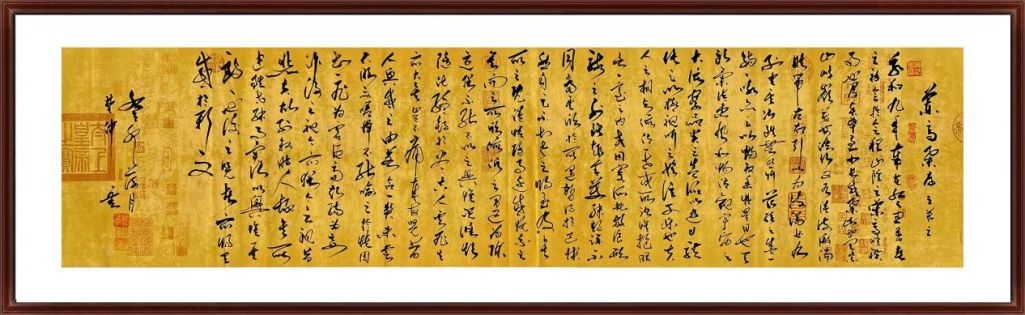 蘭亭集序 王羲之
永和九年歲在癸丑暮春
之初會於會稽山陰之蘭亭脩禊
事也群賢畢至少長咸集此地有崇
山峻嶺茂林脩竹又有清流激湍
映帶左右引以為流觴曲水
列坐其次雖無絲竹管絃之盛一
觴一詠亦足以暢敘幽情是日也天
朗氣清惠風和暢仰觀宇宙之
大俯察品類之盛所以遊目騁
懷足以極視聽之娛信可樂也夫
人之相與俯仰一世或取諸懷抱晤
言一室之內或因寄所託放浪形
骸之外雖趣舍萬殊靜躁不
同當其欣於所遇暫得於己快
然自足不知老之將至及其
所之既倦情隨事遷感慨係之
矣向之所欣俛仰之間已為陳
迹猶不能不以之興懷況脩短
隨化終期於盡古人云死生
亦大矣豈不痛哉每覽昔
人興感之由若合一契未嘗
不臨文嗟悼不能喻之於懷固
知一死生為虛誕齊彭殤為妄
作後之視今亦猶今之視昔
悲夫故列敘時人錄其所
述雖世殊事異所以興懷其
致一也後之覽者亦將有
感於斯文